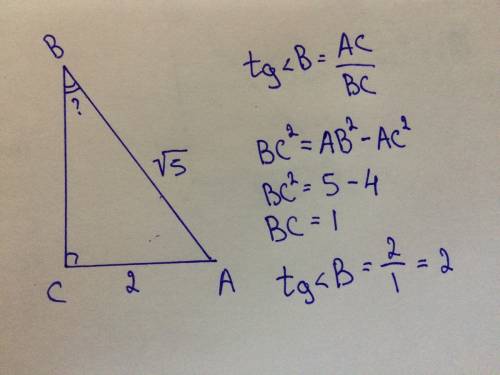 B
?
√5
C
2
A
tg<B = AC/BC
BC² = AB² - AC²
BC² = 5 - 4
BC = 1
tg<B = 2/1 = 2